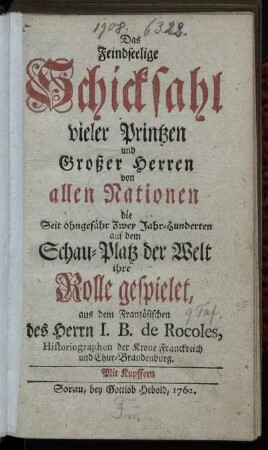 1908. 6322.
Das
Feindseelige
Schicksahl
vieler Printzen
und
Großer Herren
von
allen Nationen
die
Seit ohngefähr Zwey Jahr-Hunderten
auf dem
Schau-Platz der Welt
ihre
Rolle gespielet,
aus dem Französischen
9 Taf.
des Herrn I. B. de Rocoles,
Historiographen der Krone Franckreich
und Chur-Brandenburg.
Mit Kupffern
Sorau, bey Gottlob Hebold, 1762.